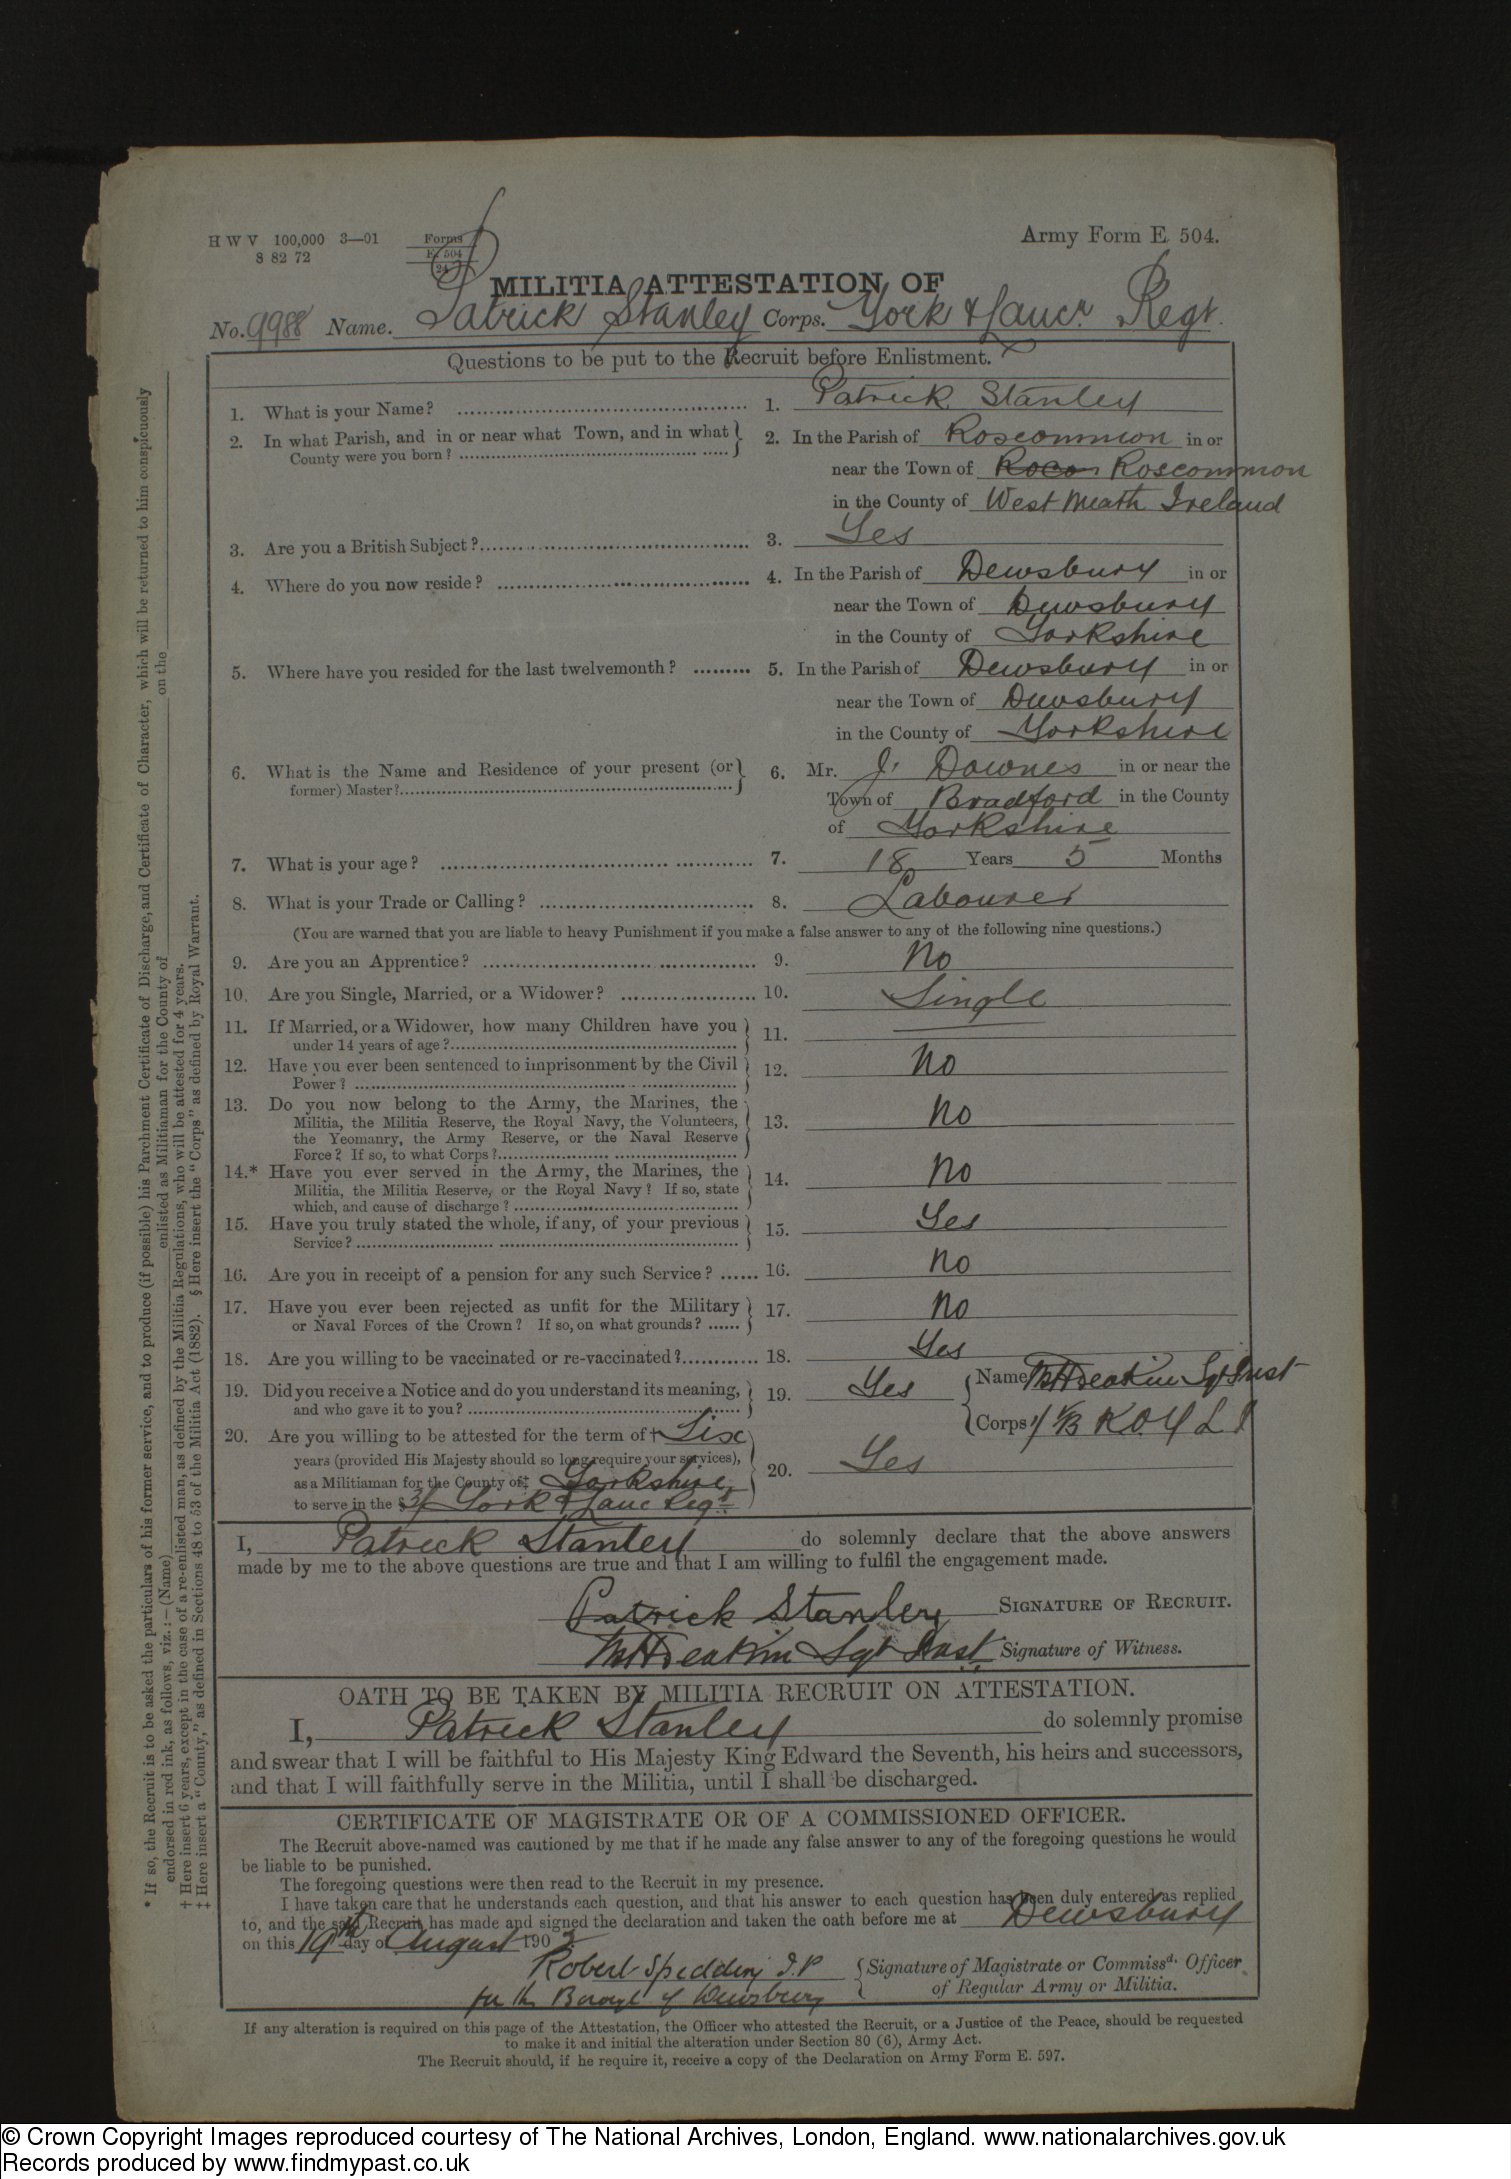 H W V 100,000 3—01
8 82 72
Forms
E. 504
24
Army Form E. 504.
MILITIA ATTESTATION OF
No. 9988 Name. Patrick Stanley Corps. York & Lancr Regt.
Questions to be put to the Recruit before Enlistment.
1. What is your Name? 1. Patrick Stanley
2. In what Parish, and in or near what Town, and in what County were you born? 2. In the Parish of Roscommon in or
near the Town of Rocon Roscommon
in the County of West Meath Ireland
3. Are you a British Subject? 3. Yes
4. Where do you now reside? 4. In the Parish of Dewsbury in or
near the Town of Dewsbury
in the County of Yorkshire
5. Where have you resided for the last twelvemonth? 5. In the Parish of Dewsbury in or
near the Town of Dewsbury
in the County of Yorkshire
6. What is the Name and Residence of your present (or former) Master? 6. Mr. J. Downes in or near the
Town of Bradford in the County
of Yorkshire
7. What is your age? 7. 18 Years 5 Months
8. What is your Trade or Calling? 8. Labourer
(You are warned that you are liable to heavy Punishment if you make a false answer to any of the following nine questions.)
9. Are you an Apprentice? 9. No
10. Are you Single, Married, or a Widower? 10. Single
11. If Married, or a Widower, how many Children have you
under 14 years of age? 11.
12. Have you ever been sentenced to imprisonment by the Civil
Power? 12. No
13. Do you now belong to the Army, the Marines, the
Militia, the Militia Reserve, the Royal Navy, the Volunteers,
the Yeomanry, the Army Reserve, or the Naval Reserve
Force? If so, to what Corps? 13. No
14.* Have you ever served in the Army, the Marines, the
Militia, the Militia Reserve, or the Royal Navy? If so, state
which, and cause of discharge? 14. No
15. Have you truly stated the whole, if any, of your previous
Service? 15. Yes
16. Are you in receipt of a pension for any such Service? 16. No
17. Have you ever been rejected as unfit for the Military
or Naval Forces of the Crown? If so, on what grounds? 17. No
18. Are you willing to be vaccinated or re-vaccinated? 18. Yes
19. Did you receive a Notice and do you understand its meaning,
and who gave it to you? 19. Yes Name Deakin Sgt Inst
Corps KOYLI
20. Are you willing to be attested for the term of † Six
years (provided His Majesty should so long require your services),
as a Militiaman for the County of ‡ Yorkshire
to serve in the § 3/ York & Lanc Regt. 20. Yes
I, Patrick Stanley do solemnly declare that the above answers
made by me to the above questions are true and that I am willing to fulfil the engagement made.
Patrick Stanley SIGNATURE OF RECRUIT.
Deakin Sgt Inst Signature of Witness.
OATH TO BE TAKEN BY MILITIA RECRUIT ON ATTESTATION.
I, Patrick Stanley do solemnly promise
and swear that I will be faithful to His Majesty King Edward the Seventh, his heirs and successors,
and that I will faithfully serve in the Militia, until I shall be discharged.
CERTIFICATE OF MAGISTRATE OR OF A COMMISSIONED OFFICER.
The Recruit above-named was cautioned by me that if he made any false answer to any of the foregoing questions he would
be liable to be punished.
The foregoing questions were then read to the Recruit in my presence.
I have taken care that he understands each question, and that his answer to each question has been duly entered as replied
to, and the said Recruit has made and signed the declaration and taken the oath before me at Dewsbury
on this 19th day of August 190
Robert Spedding J.P Signature of Magistrate or Commissd. Officer
for the Borough of Dewsbury of Regular Army or Militia.
If any alteration is required on this page of the Attestation, the Officer who attested the Recruit, or a Justice of the Peace, should be requested
to make it and initial the alteration under Section 80 (6), Army Act.
The Recruit should, if he require it, receive a copy of the Declaration on Army Form E. 597.
* If so, the Recruit is to be asked the particulars of his former service, and to produce (if possible) his Parchment Certificate of Discharge, and Certificate of Character, which will be returned to him conspicuously
endorsed in red ink, as follows, viz.:—(Name) enlisted as Militiaman for the County of on the
† Here insert 6 years, except in the case of a re-enlisted man, as defined by the Militia Regulations, who will be attested for 4 years.
‡ Here insert a "County," as defined in Sections 48 to 53 of the Militia Act (1882). § Here insert the "Corps" as defined by Royal Warrant.
© Crown Copyright Images reproduced courtesy of The National Archives, London, England. www.nationalarchives.gov.uk
Records produced by www.findmypast.co.uk